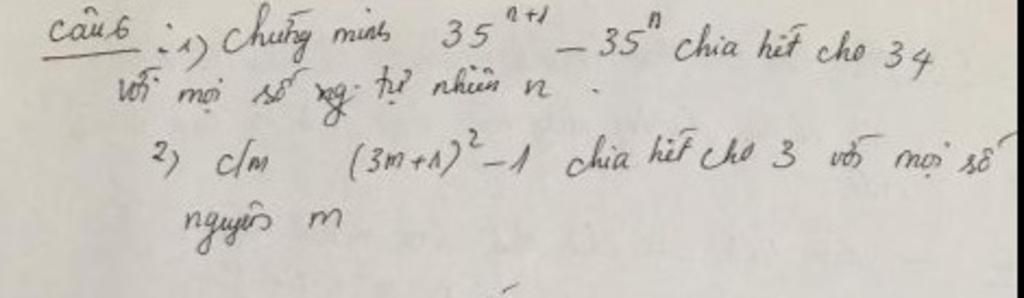 Câu 6 : 1) Chứng minh 35^{n+1} - 35^n chia hết cho 34
với mọi số ng. tự nhiên n .
2) c/m (3m+1)^2 - 1 chia hết cho 3 với mọi số
nguyên m